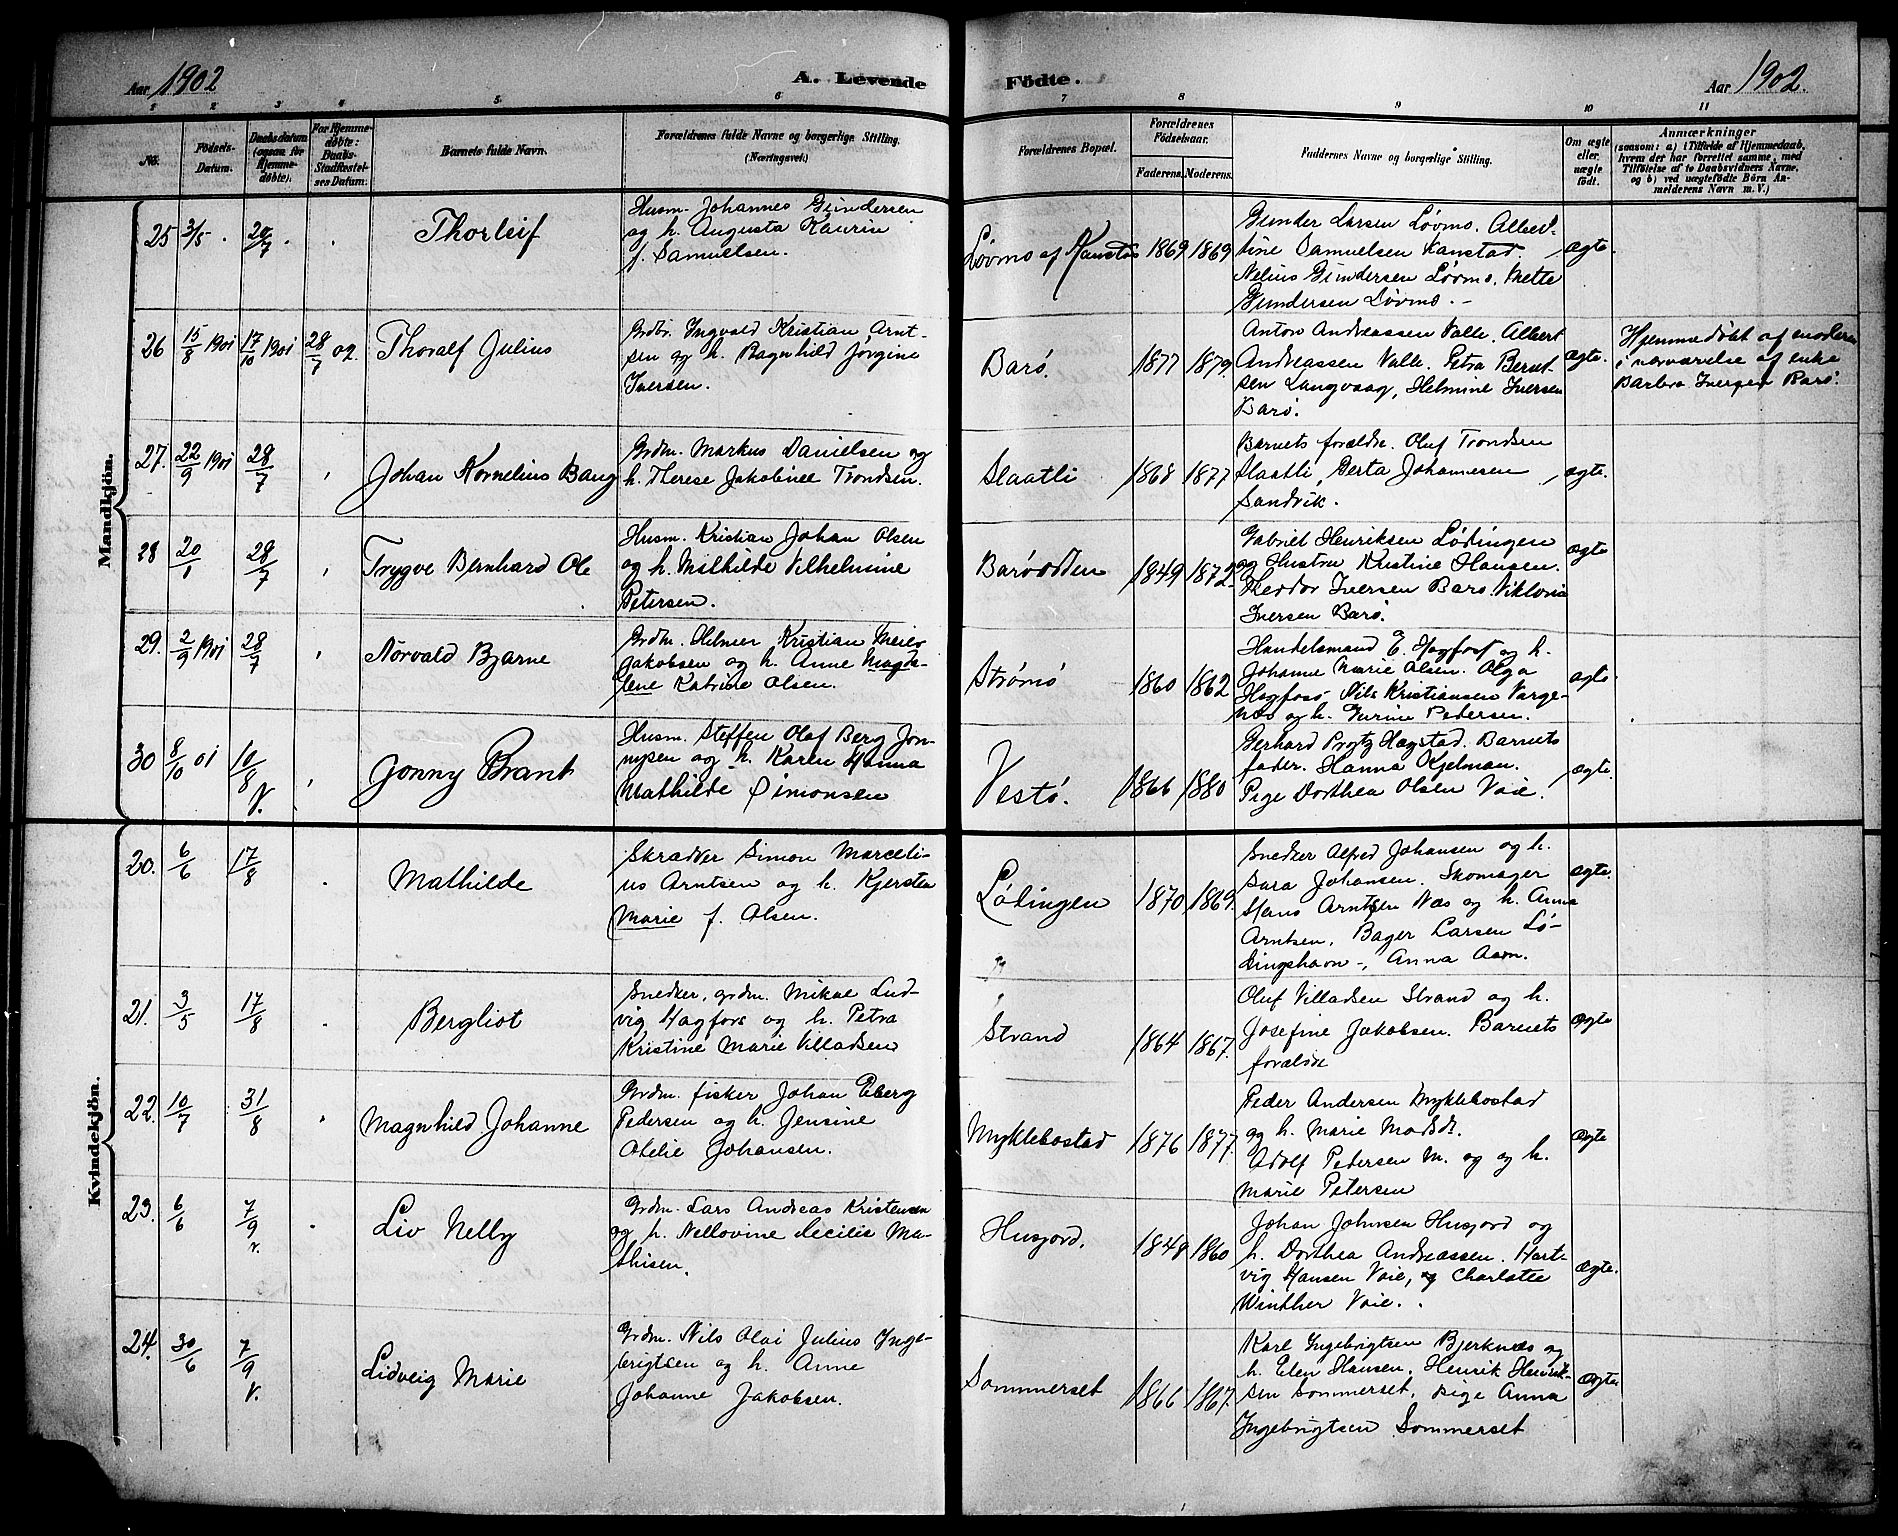 Aar 1902
A. Levende
Födte.
Aar 1902.
1 2 3 4 5. 6 7 8 9 10 11
No.
Födsels-
Datum.
Daabsdatum
(ogsaa for
Hjemme-
döbte).
For Hjemme-
döbte:
Daabs-
Stadfæstel-
ses Datum.
Barnets fulde Navn.
Forældrenes fulde Navne og borgerlige Stilling.
(Næringsvei.)
Forældrenes Bopæl.
Forældrenes
Födselsaar.
Faderens. Moderens.
Faddernes Navne og borgerlige Stilling.
Om ægte
eller
uægte
födt.
Anmærkninger
(saasom: a) i Tilfælde af Hjemmedaab,
hvem der har forrettet samme, med
Tilföielse af to Daabsvidners Navne,
og b) ved uægtefödte Börn An-
melderens Navn m. V.)
Mandkjön.
25 3/5. 20/7.
Thorleif
Husm. Johannes Gundersen
og h. Augusta Kaurin
f. Samuelsen.
Løvmo af Kanstad 1869 1869
Gunder Larsen Løvmo. Albert-
ine Samuelsen Kanstad.
Nelius Gundersen Løvmo. Mette
Gundersen Løvmo. -
ægte.
26 15/8 1901 17/10 1901 28/7 02.
Thoralf Julius
Grdbr. Ingvald Kristian Arnt-
sen og h. Ragnhild Jørgine
Iversen.
Barø. 1877 1879.
Anton Andreassen Valle. Albert
Andreassen Valle. Petra Bernt-
sen Langvaag, Helmine Iversen
Barø.
ægte.
Hjemmedøbt af moderen
i nærværelse af enke
Barbra Iversen Barø.
27. 22/9 1901 28/7
Johan Kornelius Baug
Grdm. Markus Danielsen og
h. Therese Jakobine Trondsen.
Slaatli 1868 1877
Barnets forældre. Oluf Trondsen
Slaatli, Berta Johannesen
Sandvik.
ægte.
28 20/1 28/7
Trygve Bernhard Ole
Husm. Kristian Johan Olsen
og h. Mathilde Vilhelmine
Petersen.
Barøodden 1849 1872.
Gabriel Henriksen Lødingen
og Hustru Kristine Hansen.
Theodor Iversen Barø. Viktoria
Iversen Barø.
ægte
29. 2/9 1901 28/7
Norvald Bjarne
Grdm. Helmer Kristian Meier
Jakobsen og h. Anne Magda-
lene Katrine Olsen.
Strømø 1860 1862
Handelsmand E. Hagfors og h.
Johanne Marie Olsen. Olga
Hagfors. Nils Kristiansen Varge-
næs og h. Gurine Pedersen.
ægte
30 8/10 01 10/8 V.
Jonny Brant
Husm. Steffen Olaf Berg Jon-
nysen og h. Karen Hanna
Mathilde Simonsen
Vestø. 1866 1880
Gerhard Prytz Hagstad. Barnets
fader. Hanna Kjelman.
Pige Dorthea Olsen Vaie.
ægte.
Kvindekjön.
20. 6/6 17/8
Mathilde
Skrædder Simon Marceli-
us Arntsen og h. Kjersten
Marie f. Olsen.
Lødingen 1870 1869.
Snedker Alfred Johansen og h.
Sara Johansen. Skomager
Hans Arntsen Næs og h. Anna
Arntsen. Bager Larsen Lø-
dingshavn -, Anna Aam.
ægte.
21. 3/5 17/8
Bergliot
Snedker, grdm. Mikal Lud-
vig Hagfors og h. Petra
Kristine Marie Villadsen
Strand 1864 1867.
Oluf Villadsen Strand og h.
Josefine Jakobsen. Barnets
forældre
Ægte
22. 10/7 31/8
Magnhild Johanne
Grdm. fisker Johan Eberg
Pedersen og h. Jensine
Otelie Johansen.
Myklebostad 1876 1877.
Peder Andersen Myklebostad
og h. Marie Madsdr.
Adolf Petersen M. og og h.
Marie Petersen
Ægte
23. 6/6 7/9 v.
Liv Nelly
Grdm. Lars Andreas Kristensen
og h. Nellovine Cecilie Ma-
thisen.
Husjord. 1848 1860
Johan Johnsen Husjord og
h. Dorthea Andreassen. Hart-
vig Hansen Vaie, og Charlotte
Winther Vaie.
Ægte.
24. 30/6 7/9 V.
Lidveig Marie
Grdm. Nils Olai Julius Inge-
brigtsen og h. Anne
Johanne Jakobsen.
Sommerset 1866 1867.
Karl Ingebrigtsen Bjerknæs og
h. Elen Hansen, Henrik Henrik-
sen Sommerset, pige Anna
Ingebrigtsen Sommerset
Ægte